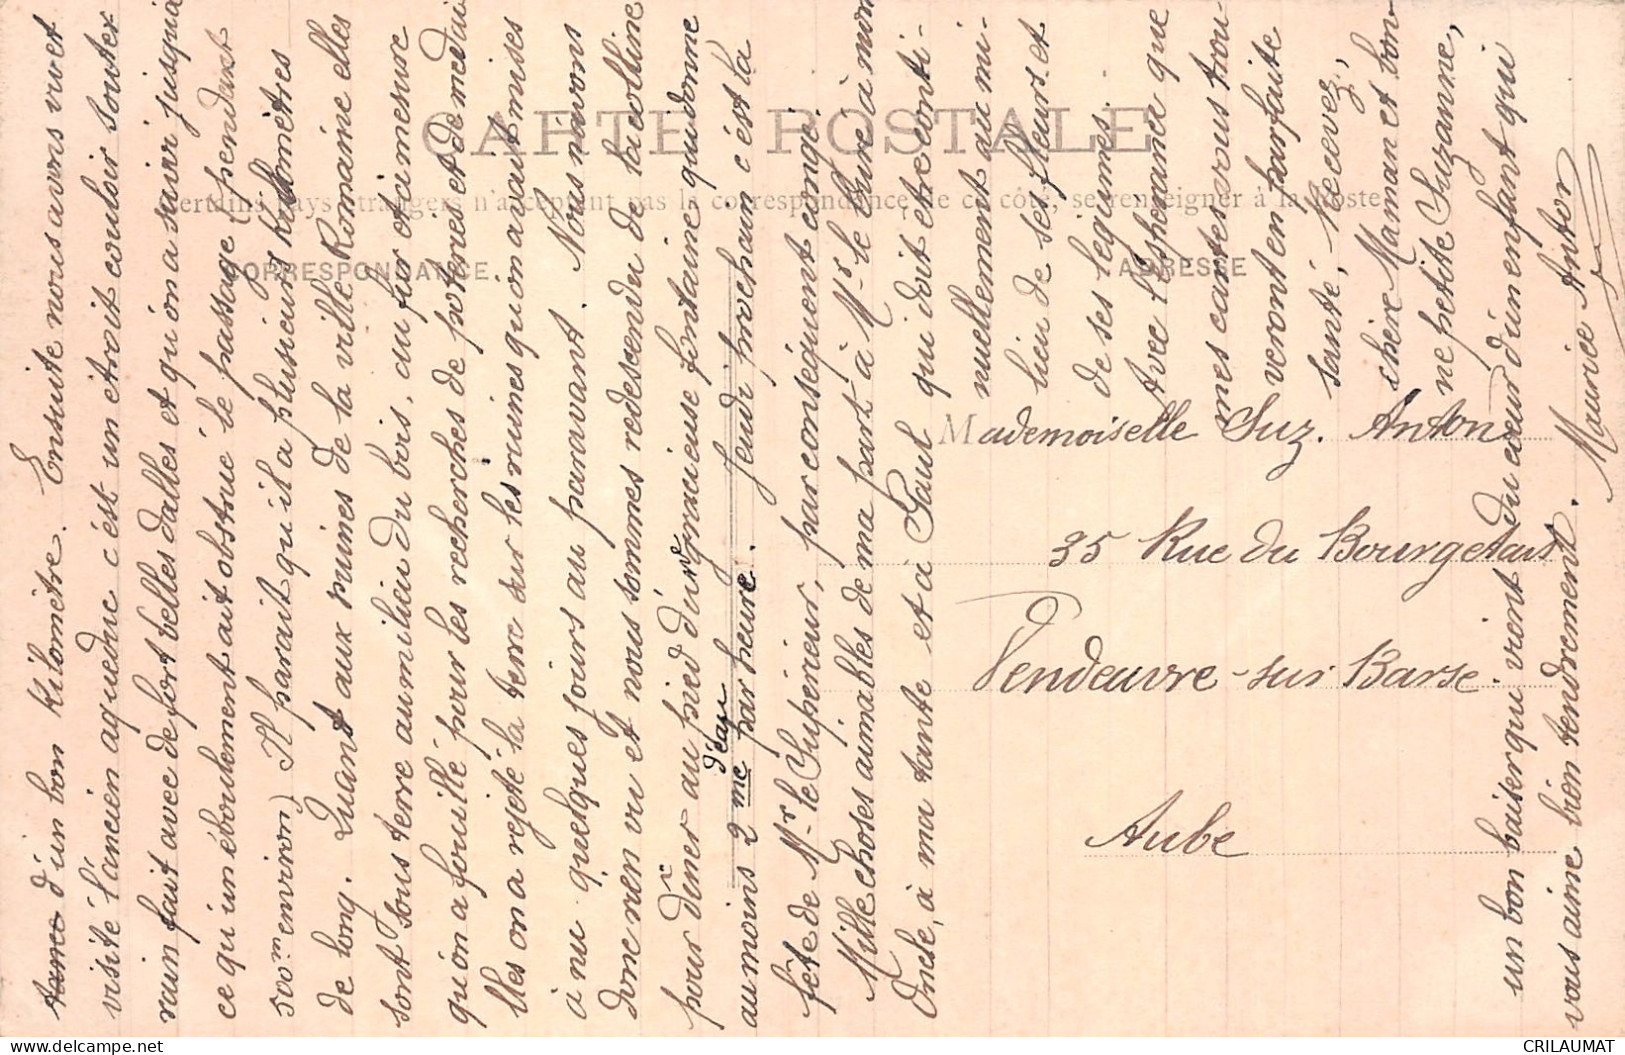 CARTE POSTALE
Certains pays étrangers n'acceptent pas la correspondance de ce côté, se renseigner à la Poste
CORRESPONDANCE
ADRESSE
Mademoiselle Suz. Anton
35 Rue du Bourgetaut
Vendeuvre-sur Barse.
Aube
d'un bon kilomètre. Ensuite nous avons vu et
visité l'ancien aqueduc c'est un étroit couloir souter
rain fait avec de fort belles dalles et qu'on a suivi jusqu'à
ce qu'un éboulement ait obstrué le passage (pendant
500m environ) Il parait qu'il a plusieurs kilomètres
de long. Quant aux ruines de la ville Romaine elles
sont sous terre au milieu du bois, au fur et à mesure
qu'on a fouillé pour les recherches de poteries et de médai
lles on a rejeté la terre sur les ruines qu'on avait mises
à nu quelques jours au paravant. Nous n'avons
donc rien vu et nous sommes redescendu de la colline
pour diner au pied d'une gracieuse fontaine qui donne
au moins 2 mc d'eau par heure. Jeudi prochain c'est la
fête de Mr le Supérieur, par conséquent congé.
Mille choses aimables de ma part à Mr le Curé à mon
Oncle, à ma tante et à Paul qui doit être conti-
nuellement au mi-
lieu de ses fleurs et
de ses légumes.
Avec l'espérance que
mes cartes vous trou-
veront en parfaite
santé, Recevez,
chère Maman et bon-
ne petite Suzanne,
un bon baiser qui vient du cœur d'un enfant qui
vous aime bien tendrement. Maurice Anton
CRILAUMAT